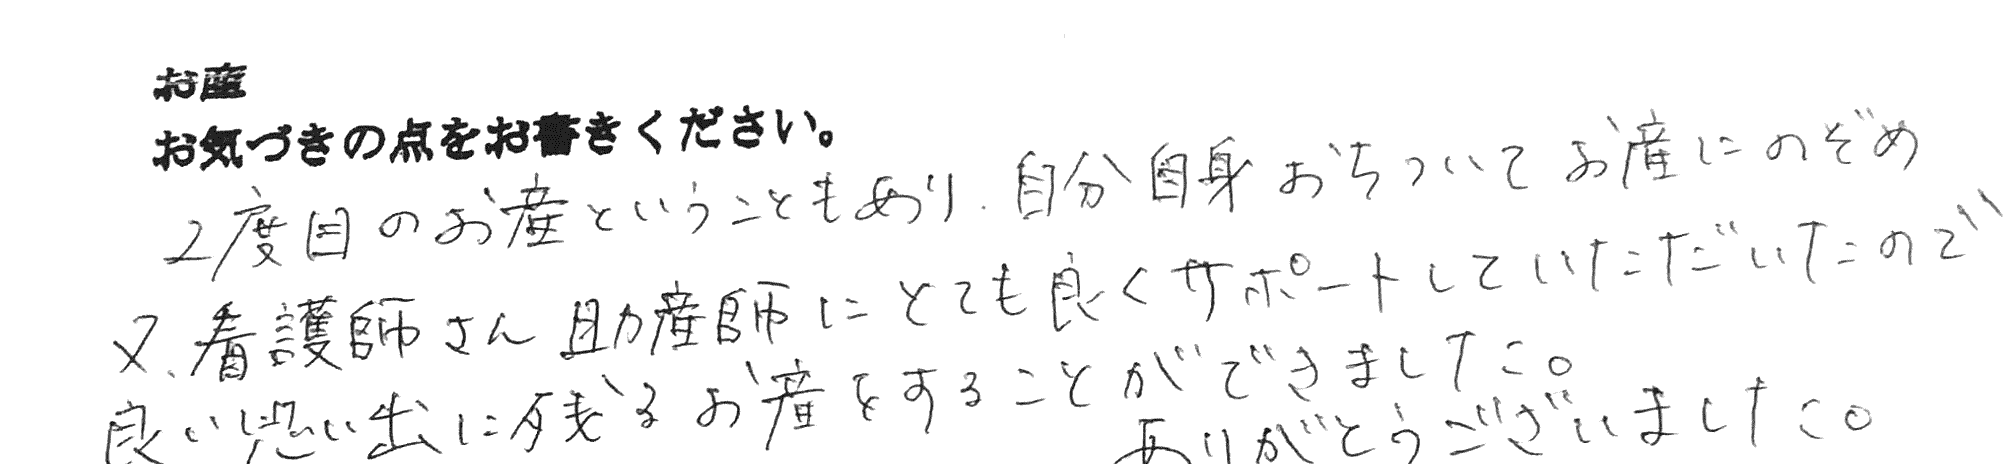 お産
お気づきの点をお書きください。
2度目のお産ということもあり、自分自身おちついてお産にのぞめ
又、看護師さん助産師にとても良くサポートしていただいたので
良い思い出に残るお産をすることができました。
ありがとうございました。